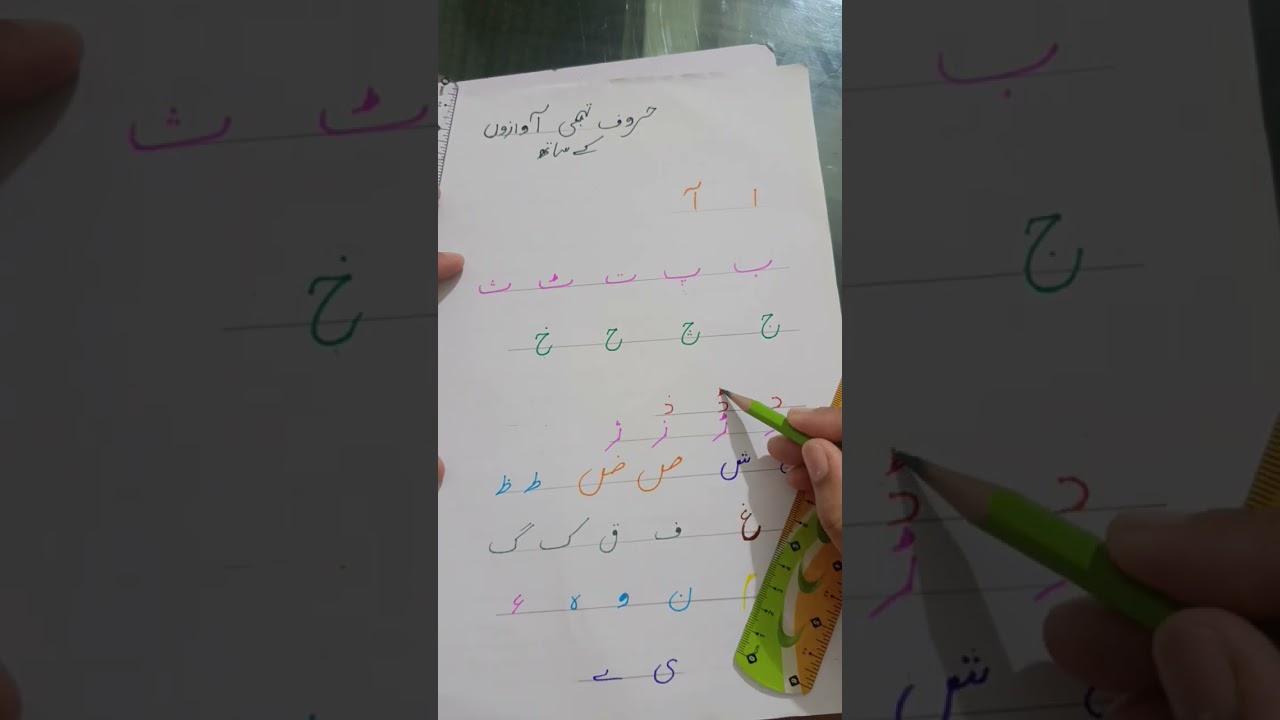 حروف تہجی آوازوں
کے ساتھ
ا آ
ب پ ت ٹ ث
ج چ ح خ
د ڈ ذ
ر ڑ ز ژ
ش ص ض ط ظ
غ ف ق ک گ
م ن و ہ ء
ی ے